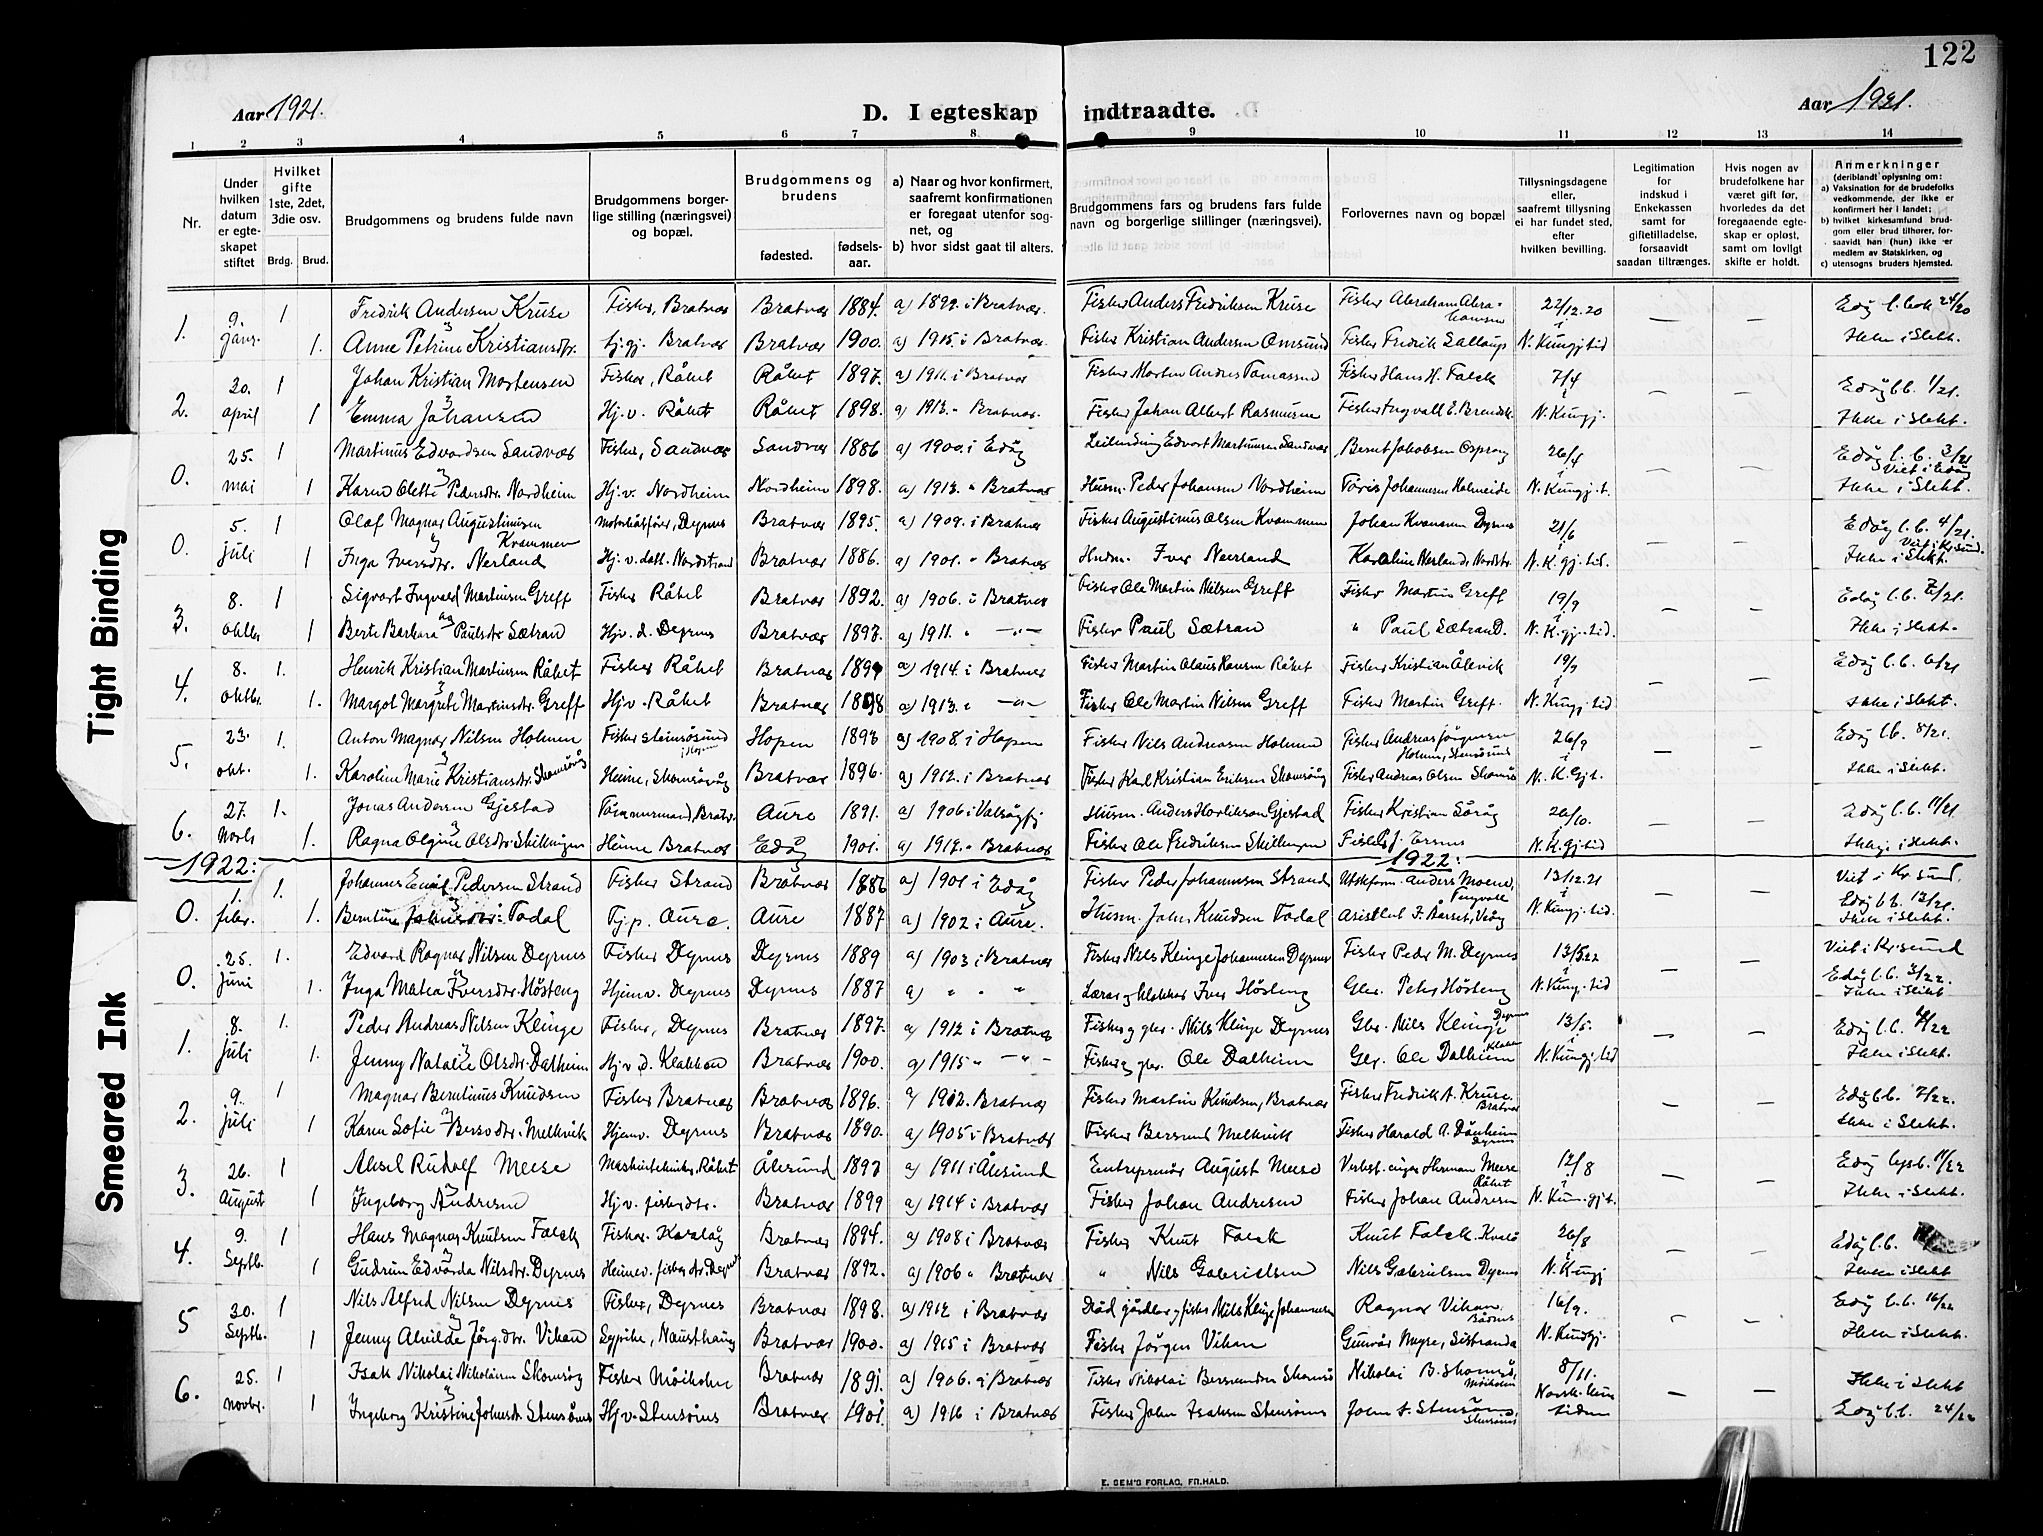 122
Aar 1921.
D. I egteskap indtraadte.
Aar 1921.
1 2 3 4 5 6 7 8 9 10 11 12 13 14
Nr.
Under hvilken datum er egteskapet stiftet
Hvilket gifte 1ste, 2det, 3die osv.
Brdg. Brud.
Brudgommens og brudens fulde navn
Brudgommens borgerlige stilling (næringsvei) og bopæl.
Brudgommens og brudens
fødested. fødselsaar.
a) Naar og hvor konfirmert, saafremt konfirmationen er foregaat utenfor sognet, og
b) hvor sidst gaat til alters.
Brudgommens fars og brudens fars fulde navn og borgerlige stillinger (næringsvei).
Forlovernes navn og bopæl
Tillysningsdagene eller, saafremt tillysning ei har fundet sted, efter hvilken bevilling.
Legitimation for indskud i Enkekassen samt for giftetilladelse, forsaavidt saadan tiltrænges.
Hvis nogen av brudefolkene har været gift før, hvorledes da det foregaaende egteskap er opløst, samt om lovligt skifte er holdt.
Anmerkninger (deriblandt oplysning om:
a) Vaksination for de brudefolks vedkommende, der ikke er konfirmert her i landet;
b) hvilket kirkesamfund brudgom eller brud tilhører, forsaavidt han (hun) ikke er medlem av Statskirken, og
c) utensogns bruders hjemsted.
1. 9. 1 Fredrik Andersen Kruse Fisker, Bratvær Bratvær 1884. a) 1899. i Bratvær. Fisker Anders Fredriksen Kruse Fisker Abraham Abrahamsen 22/12.20 — — 24/20
janr. 1. Anne Petrine Kristiansdtr. tj.gj. Bratvær Bratvær 1900. a) 1915. i Bratvær Fisker Kristian Andersen Omsund Fisker Fredrik N. Kungj. tid Ikke i Slekt.
2. 20. 1 Johan Kristian Mortensen Fisker, Råket Råket 1897. a) 1911. i Bratvær Fisker Morten Andres Tomassen Fisker Hans H. Falck 7/4 — — Edøy l.b. 1/21.
april 1 Emma Johansen Hj.v. Råket Råket 1898. a) 1913. " Bratvær. Fisker Johan Albert Rasmussen Fisker Ingvall E. N. Kungj. Ikke i Slekt.
0. 25. 1 Martinus Edvardsen Sandvær Fisker, Sandvær Sandvær 1886 a) 1900. i Edøy Edvart Martinusen Sandvær Bernt Jakobsen 26/4 — — Edøy l.b. 3/21 Viet i Edøy
mai 1 Karen Olette Pedersdtr. Nordheim Hj.v. Nordheim Nordheim 1898. a) 1913. " Bratvær Husm. Peder Johansen Nordheim Johannesen N. Kungj. t. Ikke i Slekt.
0. 5. 1 Olaf Magnar Augustinusen Kvammen Dyrnes Bratvær 1895. a) 1909. i Bratvær Fisker Augustinus Olsen Kvammen Johan Dyrnes 21/6 — — Edøy l.b. 4/21. Viet i Kr.sund.
juli 1 Inga Iversdtr. Nerland Hj.v. datt. Nordstrand Bratvær 1886. a) 1901. " Bratvær Husm. Iver Neerland Karoline Nerland N. K.gj. tid. Ikke i Slekt.
3. 8. 1 Sigvart Ingvald Martinsen Greff Fisker Råket Bratvær 1892. a) 1906. i Bratvær Fisker Ole Martin Nilsen Greff Fisker Martin Greff 19/9 — — Edøy l.b. /21.
oktbr 1 Berte Barbara Paulsdtr Sætran Hjv. d. Dyrnes Bratvær 1893. a) 1911. " —"— Fisker Paul Sætran " Paul Sætran N. K.gj. tid. Ikke i Slekt.
4. 8. 1. Henrik Kristian Martinsen Råket Fisker Råket Bratvær a) 1914. i Bratvær Fisker Martin Claus Hansen Råket Fisker Kristian Ålevik 19/9 — — Edøy l.b. 6/21
oktbr. 1. Margot Margrete Martinsdtr. Greff Hjv. Råket Bratvær 1898 a) 1913. " —"— Fisker Ole Martin Nilsen Greff Fisker Martin Greff. N. Kungj. tid Ikke i Slekt.
5. 23. 1. Anton Magnar Nilsen Holmen Fisker Stensøsund i Hopen Hopen 1893 a) 1908. i Hopen Fisker Nils Andreasen Holmen Fisker Andreas Jörgensen Holmen, Stensøsund 26/9 — — Edøy l.b. 8/21.
okt. 1. Karoline Marie Kristiansdtr. Skomsøy Heime, Skomsøy Bratvær 1896. a) 1912. i Bratvær Fisker Karl Kristian Eriksen Skomsøy Fisker Andreas Olsen Skomsø N. K.Gj.t. Ikke i Slekt.
6. 27. 1. Jonas Andersen Gjestad Tömmermand, Bratv. Aure 1891. a) 1906 i Valsøyfj Husm. Anders Gjestad Fisker Kristian Söröy 26/10. — — Edøy l.b. 11/21
Novbr 1. Ragna Olgine Olsdtr. Skillingen Heime Bratvær Edøy 1901. a) 1917. " Bratvær Fisker Ole Fredriksen Skillingen N. K.gj tid Ikke i Slekt.
1922: 1922:
0. 1. 1. Johannes Emil Pedersen Strand Fisker Strand Bratvær 1886 a) 1901 i Edøy Fisker Peder Johannesen Strand Anders Moene, 13/12.21 — — Viet i Kr.sund.
febr. 1. Berntine Todal Tj.p. Aure. Aure 1887 a) 1902 i Aure. Husm. John Knudsen Todal Ingvall N. Kungj. tid. Edøy l.b. 12/21. Ikke i Slekt.
0. 25. 1. Edvard Ragnar Nilsen Dyrnes Fisker Dyrnes Dyrnes 1889 a) 1903 i Bratvær Fisker Nils Klinge Johannesen Dyrnes Fisker Peder M. Dyrnes 13/5.22 — — Viet i Kr.sund
Juni 1. Inga Matea Iversdtr. Høsteng Hjemv. Dyrnes Dyrnes 1887 a) " " " Lærer og klokker Iver Høsteng Gbr. Peter Høsteng N. Kungj. tid Edøy l.b. 3/22. Ikke i Slekt
1. 8. 1. Peder Andreas Nilsen Klinge Fisker, Dyrnes Bratvær 1897. a) 1912 i Bratvær Fisker og gbr. Nils Klinge Dyrnes Gbr. Nils Klinge Dyrnes 13/5. — — Edøy l.b. /22
juli 1. Jenny Natalie Olsdtr. Dalheim Hj.v d. Klakken Bratvær 1900. a) 1915 " —"— Fisker og gbr. Ole Dalheim Gbr. Ole Dalheim Klakken N. Kungj. tid Ikke i Slekt.
2. 9. 1 Magnar Berntinus Knudsen Fisker Bratvær Bratvær 1896. a) 1912. Bratvær Fisker Martin Knudsen, Bratvær Fisker Fredrik A. Kruse. Bratvær — — Edøy l.b. 7/22.
juli 1 Karen Sofie Bersvdtr. Melkvik Hjemv. Dyrnes Bratvær 1890. a) 1905 i Bratvær Fisker Bersvend Melkvik Fisker Harald A. Dyrnes Ikke i Slekt.
3. 26. 1 Aksel Rudolf Meese Råket Ålesund 1897 a) 1911 i Ålesund Entreprenör August Meese Herman Meese Råket 12/8 — — Edøy 11/22
August 1 Ingeborg Andresen Hj.v. fiskerdtr. Bratvær 1899 a) 1914 i Bratvær Fisker Johan Andresen Fisker Johan Andresen N. Kun.gj.t. Ikke i Slekt.
4. 9. 1 Hans Magnar Knutsen Falck Fisker. Bratvær 1894. a) 1908 i Bratvær Fisker Knut Falck Knut Falck. 26/8 — — Edøy l.b.
Septb. 1 Gudrun Edvarda Nilsdtr. Dyrnes Heimev. fisker dtr. Dyrnes Bratvær 1892. a) 1906 " Bratvær " Nils Gabrielsen Nils Gabrielsen Dyrnes N. Kungj Ikke i Slekt
5 30. 1 Nils Alfred Nilsen Dyrnes Fisker, Dyrnes Bratvær 1898. a) 1912 i Bratvær Nils Klinge Johannesen Ragnar Vikan 16/9. — — Edøy l.b. 16/22
Septb. 1 Jenny Alvilde Jörg.dtr. Vikan Bratvær 1900. a) 1915 i Bratvær Fisker Jörgen Vikan Gunvår Sistranda N. Kundgj. Ikke i Slekt.
6. 25. 1 Isak Nikolai Nikolaisen Skomsøy Fisker Möiholm Bratvær 1891. a) 1906. i Bratvær Fisker Nikolai Skomsø Nikolai B. Skomsö, Möiholm 8/11. — — Ikke i Slekt
novbr. 1 Ingeborg Kristine Johnsdtr Stensönes Hj.v. Stensönes Bratvær 1901. a) 1916 i Bratvær Fisker John Isaksen Stensönes John I. Stensönes Stensönes Norsk. kun tiden Edøy l.b. 24/22
E. SEM'S FORLAG, FR.HALD.
Tight Binding
Smeared Ink